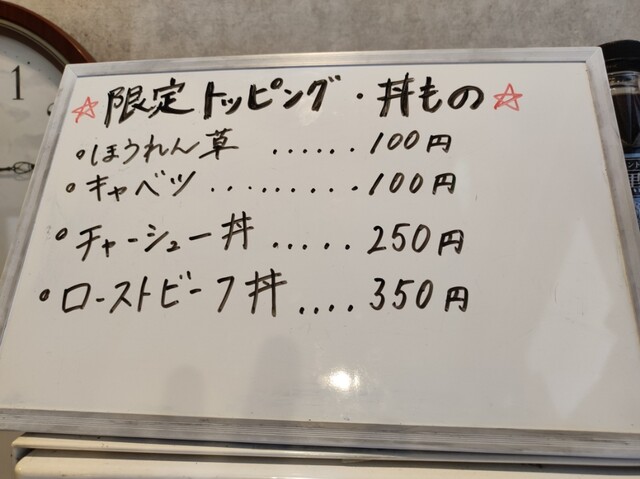 ☆限定トッピング・丼もの☆
•ほうれん草 ...... 100円
•キャベツ ......... 100円
•チャーシュー丼 ..... 250円
•ローストビーフ丼 .... 350円
1